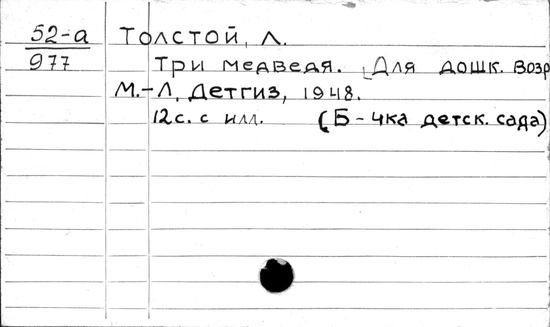 52-а Толстой, Л.
977 Три медведя. [Для дошк. возр
М.-Л, Детгиз, 1948.
12 с. с илл. (Б-чка детск. сада)